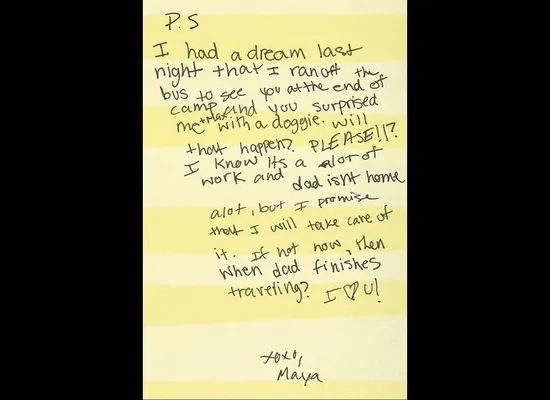 P.S
I had a dream last
night that I ran off the
bus to see you at the end of
camp and you surprised
me + Max with a doggie. will
that happen? PLEASE!!?
I know its a alot of
work and dad isnt home
alot, but I promise
that I will take care of
it. If not now, then
when dad finishes
traveling? I ♡ U!
xoxo,
Maya